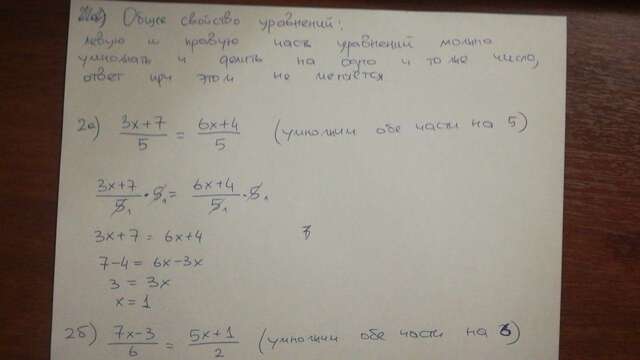 Общее свойство уравнений:
левую и правую часть уравнений можно
умножать и делить на одно и то же число,
ответ при этом не меняется
2а) (3x+7)/5 = (6x+4)/5 (умножим обе части на 5)
(3x+7)/5₁ · 5₁ = (6x+4)/5₁ · 5₁
3x+7 = 6x+4
7-4 = 6x-3x
3 = 3x
x = 1
2б) (7x-3)/6 = (5x+1)/2 (умножим обе части на 6)